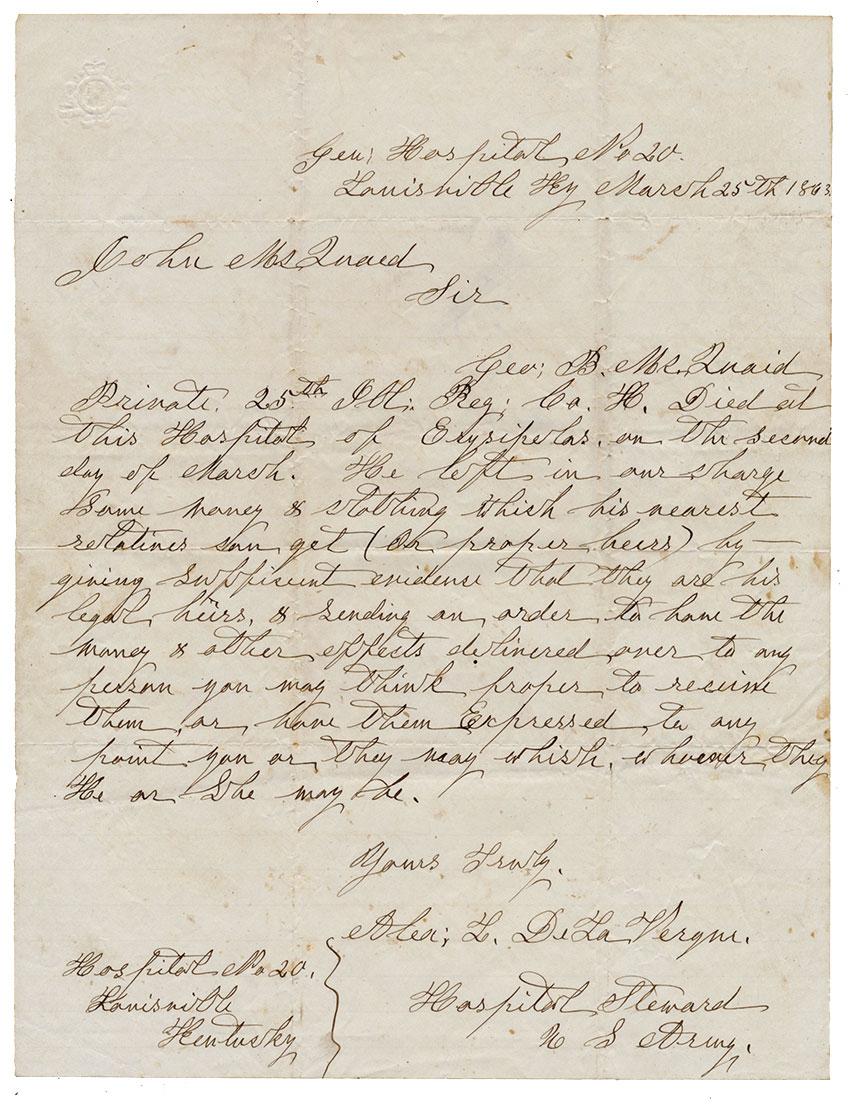 Gen; Hospital No 20.
Louisville Ky March 25th 1863.
John McQuaid
Sir
Geo; B. Mc.Quaid
Private. 25th Ill: Reg; Co. H. Died at
this Hospital of Erysipelas. on the second
day of March. He left in our charge
Some money & clothing which his nearest
relatives can get (Or proper heirs) by
giving sufficient evidence that they are his
legal heirs, & sending an order to have the
money & other effects delivered over to any
person you may think proper to receive
them, or have them Expressed to any
point you or they may whish. whoever they
He or She may be.
Yours Truly.
Alex; L. DeLa Vergne.
Hospital No 20.
Louisville
Kentucky
Hospital Steward
U S Army.